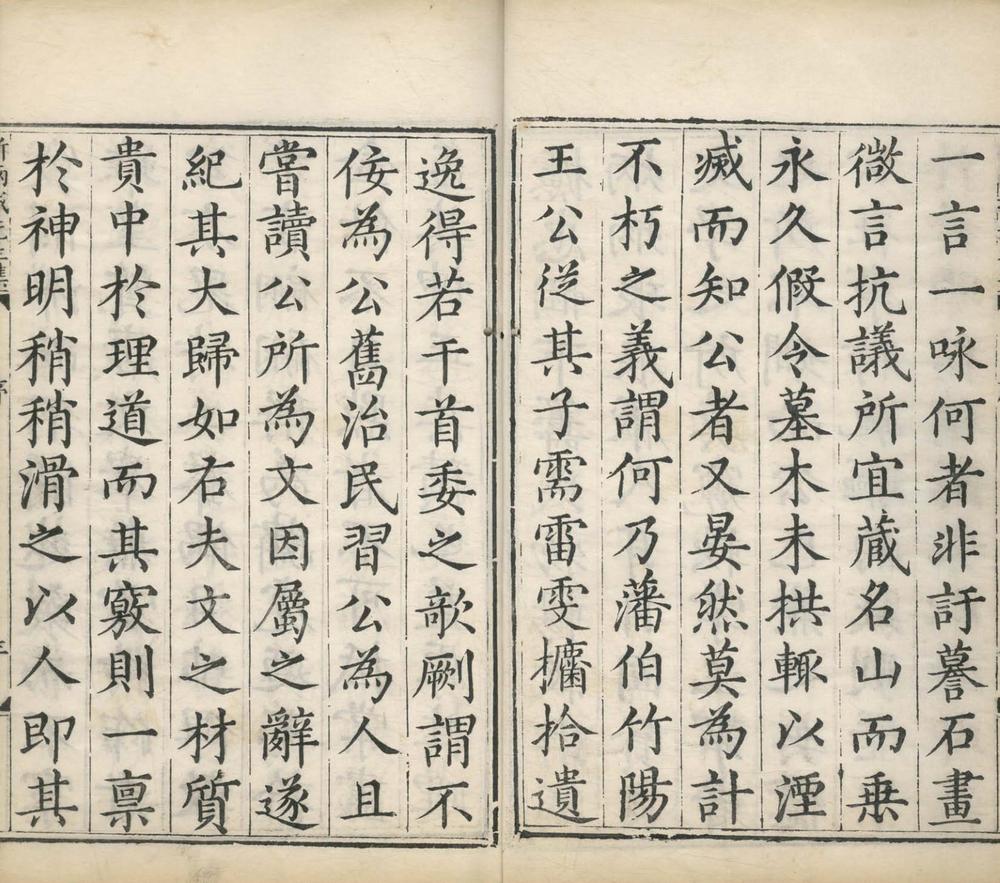 一言一咏何者非訏謩石畫
微言抗議所宜蔵名山而垂
永久假令墓木未拱輒以湮
滅而知公者又晏然莫為計
不朽之義謂何乃藩伯竹陽
王公従其子需雷雯攟拾遺
逸得若干首委之欹劂謂不
佞為公舊治民習公為人且
嘗讀公所為文因屬之辭遂
紀其大歸如右夫文之材質
貴中於理道而其竅則一禀
於神明稍稍滑之以人即其